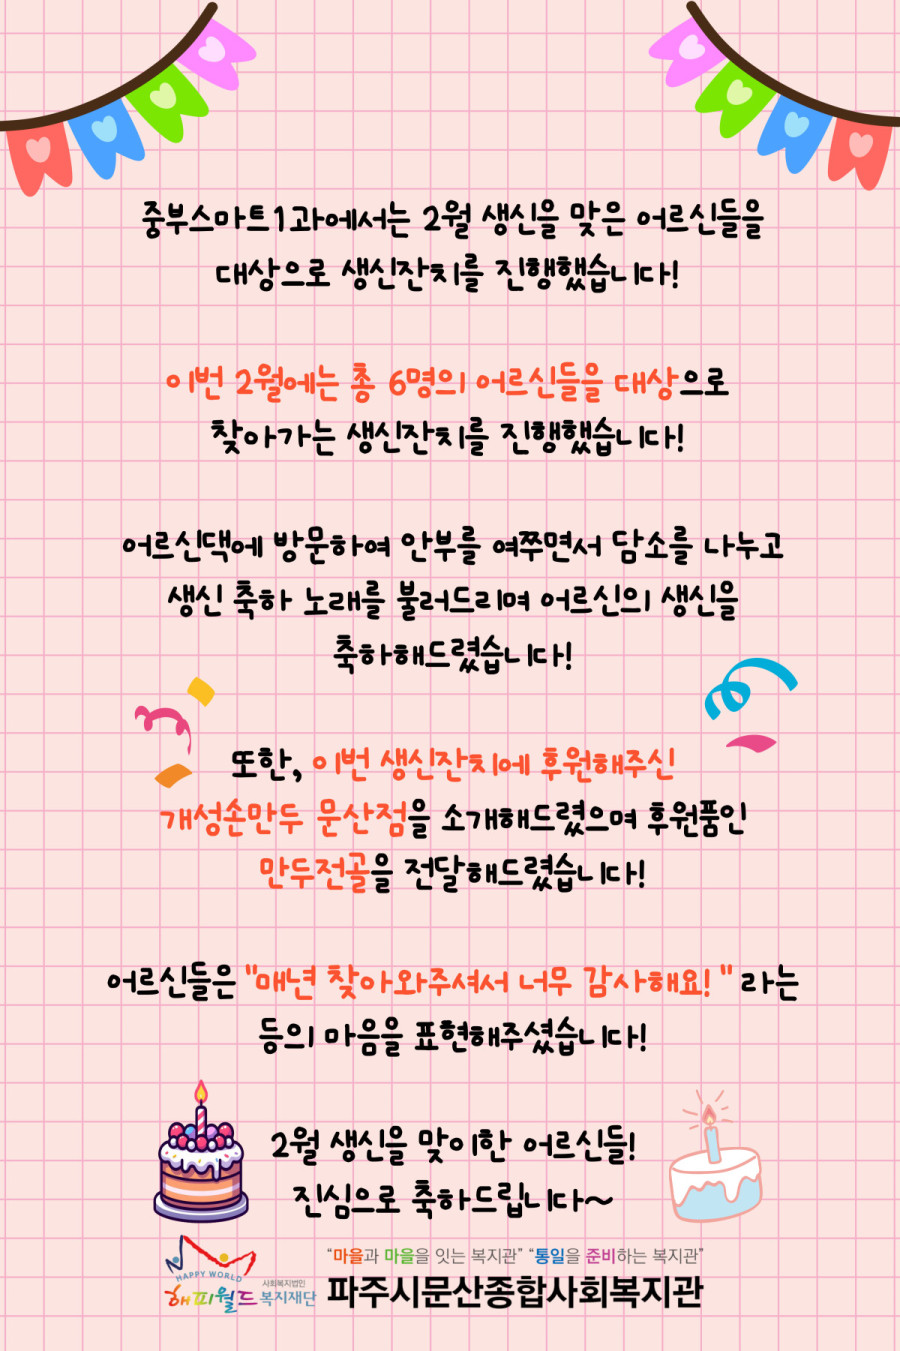 중부스마트1과에서는 2월 생신을 맞은 어르신들을
대상으로 생신잔치를 진행했습니다!
이번 2월에는 총 6명의 어르신들을 대상으로
찾아가는 생신잔치를 진행했습니다!
어르신댁에 방문하여 안부를 여쭈면서 담소를 나누고
생신 축하 노래를 불러드리며 어르신의 생신을
축하해드렸습니다!
또한, 이번 생신잔치에 후원해주신
개성손만두 문산점을 소개해드렸으며 후원품인
만두전골을 전달해드렸습니다!
어르신들은 "매년 찾아와주셔서 너무 감사해요! " 라는
등의 마음을 표현해주셨습니다!
2월 생신을 맞이한 어르신들!
진심으로 축하드립니다~
HAPPY WORLD
사회복지법인
해피월드 복지재단
“마을과 마을을 잇는 복지관” “통일을 준비하는 복지관”
파주시문산종합사회복지관